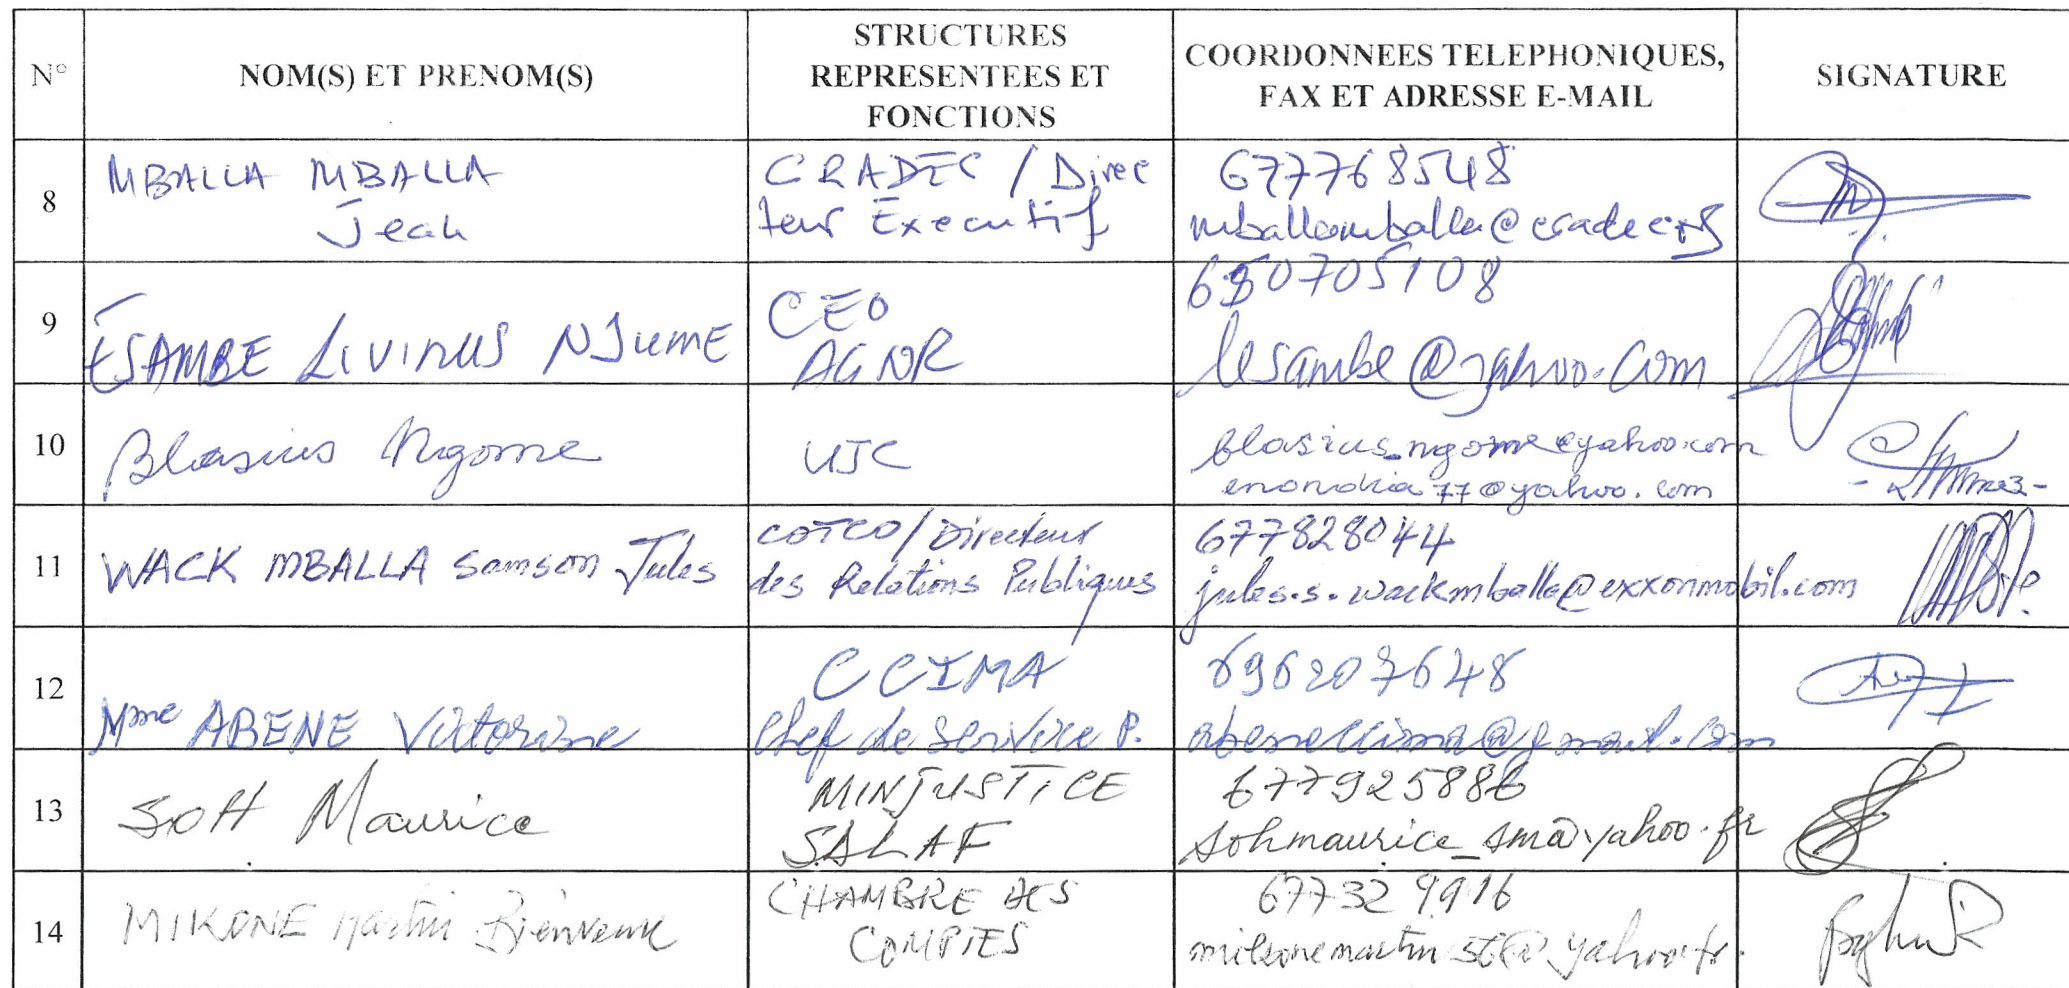 N°
NOM(S) ET PRENOM(S)
STRUCTURES
REPRESENTEES ET
FONCTIONS
COORDONNEES TELEPHONIQUES,
FAX ET ADRESSE E-MAIL
SIGNATURE
8
MBALLA MBALLA
Jean
CRADEC / Direc
teur Executif
677768548
9
ESAMBE LIVINUS NJUME
CEO
AGNR
lesambe@yahoo.com
10
Blasius Ngome
UJC
blasius_ngome@yahoo.com
enonchia77@yahoo.com
11
WACK MBALLA Samson Jules
COTCO/Directeur
des Relations Publiques
677828044
jules.s.wackmballa@exxonmobil.com
12
Mme ABENE Victorine
CCIMA
Chef de Service P.
696207648
abeneccima@gmail.com
13
SOH Maurice
MINJUSTICE
677925886
sohmaurice_sm@yahoo.fr
14
MIKONE Martin Bienvenu
CHAMBRE DES
COMPTES
677329916
mikonemartin56@yahoo.fr.